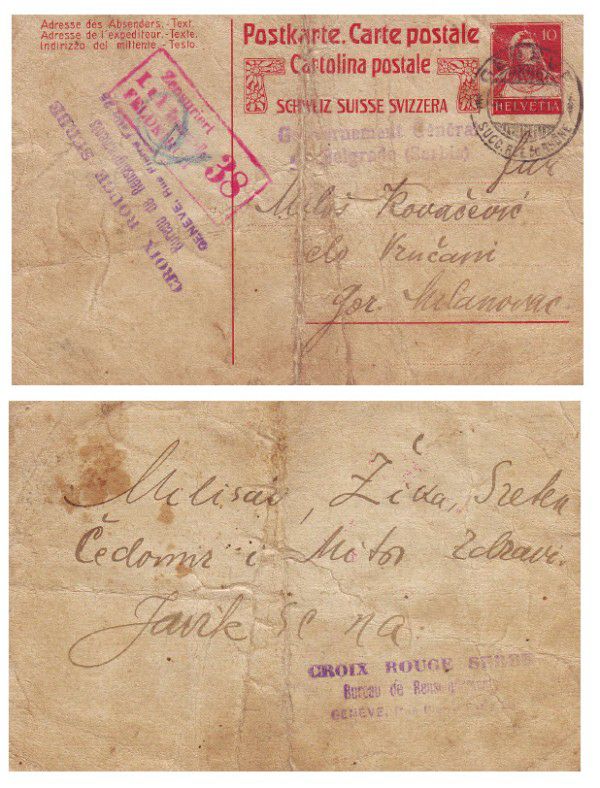 Adresse des Absenders.-Text.
Adresse de l'expéditeur.-Texte.
Indirizzo del mittente.-Testo.
Postkarte. Carte postale
Cartolina postale
SCHWEIZ SUISSE SVIZZERA
10
HELVETIA
SUCC. RUE du RHONE
Zensuriert
FELDK
38
CROIX ROUGE SERBE
Bureau de Renseignements
GENÈVE, Rue
Gouvernement Général
de Belgrade (Serbie)
für
Miloš Kovačević
selo Vručani
Gor. Milanovac.
Milisav, Žika, Sreten
Čedomir i Mitar Zdravi.
Javite se na
CROIX ROUGE SERBE
Bureau de Renseignements
GENÈVE,